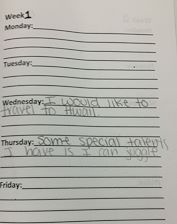 Week1
Monday:
Tuesday:
Wednesday: I would like to
travel to Hwaii.
Thursday: Some special talents
I have is I can juggle
Friday: